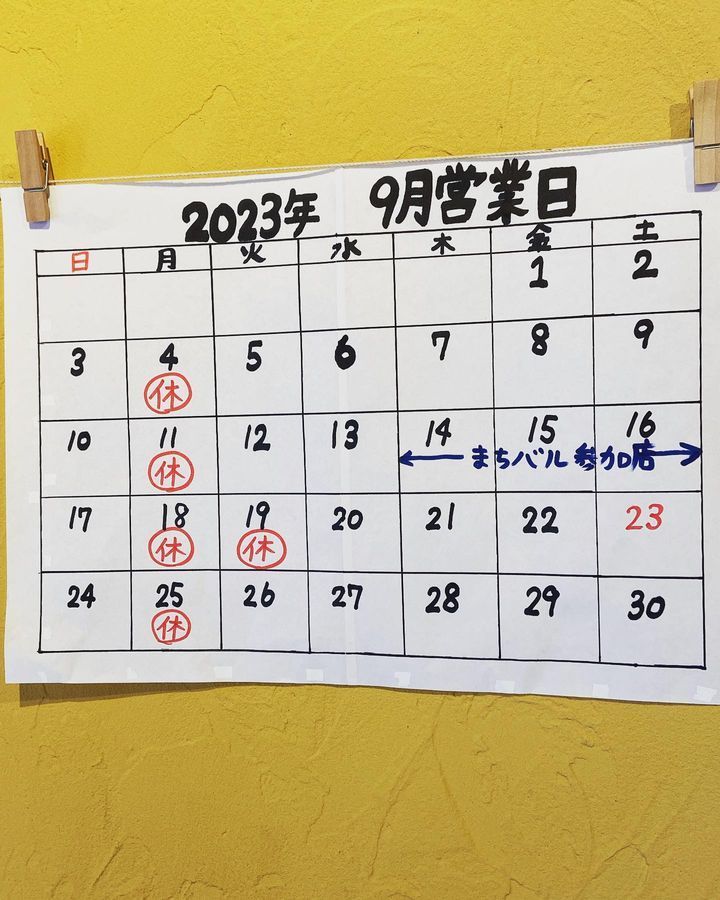 2023年 9月営業日
日 月 火 水 木 金 土
1 2
3 4 5 6 7 8 9
休
10 11 12 13 14 15 16
休 まちバル参加店
17 18 19 20 21 22 23
休 休
24 25 26 27 28 29 30
休